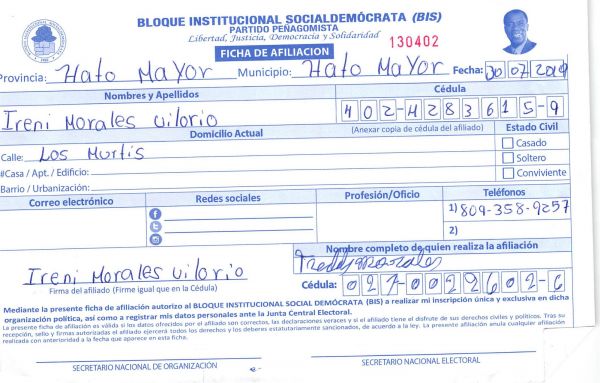 BLOQUE INSTITUCIONAL SOCIALDEMÓCRATA (BIS)
PARTIDO PEÑAGOMISTA
Libertad, Justicia, Democracia y Solidaridad
FICHA DE AFILIACION 130402
Provincia: Hato Mayor Municipio: Hato Mayor Fecha: 30/07/2019
Nombres y Apellidos Cédula
Ireni Morales Vilorio 402-4283615-9
Domicilio Actual (Anexar copia de cédula del afiliado) Estado Civil
Calle: Los Murtis Casado
#Casa / Apt. / Edificio: Soltero
Barrio / Urbanización: Conviviente
Correo electrónico Redes sociales Profesión/Oficio Teléfonos
1) 809-358-9257
2)
Nombre completo de quien realiza la afiliación
Freddy Morales
Ireni Morales Vilorio
Firma del afiliado (Firme igual que en la Cédula) Cédula: 027-0029602-6
Mediante la presente ficha de afiliación autorizo al BLOQUE INSTITUCIONAL SOCIAL DEMÓCRATA (BIS) a realizar mi inscripción única y exclusiva en dicha
organización política, así como a registrar mis datos personales ante la Junta Central Electoral.
La presente ficha de afiliación es válida si los datos ofrecidos por el afiliado son correctos, las declaraciones veraces y si el afiliado tiene el disfrute de sus derechos civiles y políticos. Tras su
recepción, sello y firmas autorizadas el afiliado ejercerá todos los derechos y los deberes estatutariamente sancionados, de acuerdo a la ley. La presente afiliación anula cualquier afiliación
realizada con anterioridad a la fecha que aparece en esta ficha.
SECRETARIO NACIONAL DE ORGANIZACIÓN SECRETARIO NACIONAL ELECTORAL